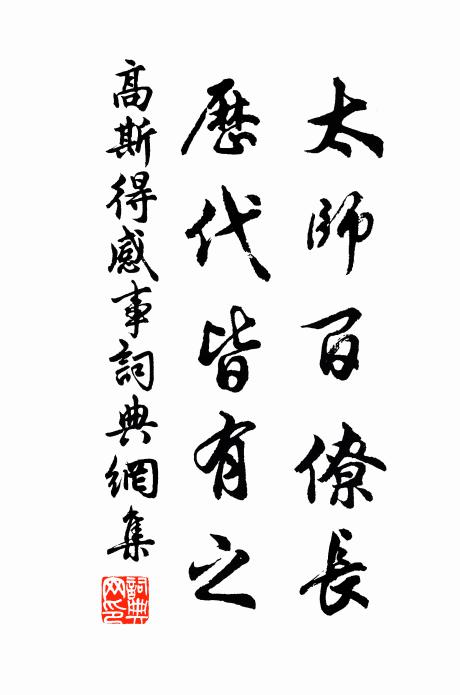 太師百僚長
歷代皆有之
高斯得感事詞典網集
詞典網印